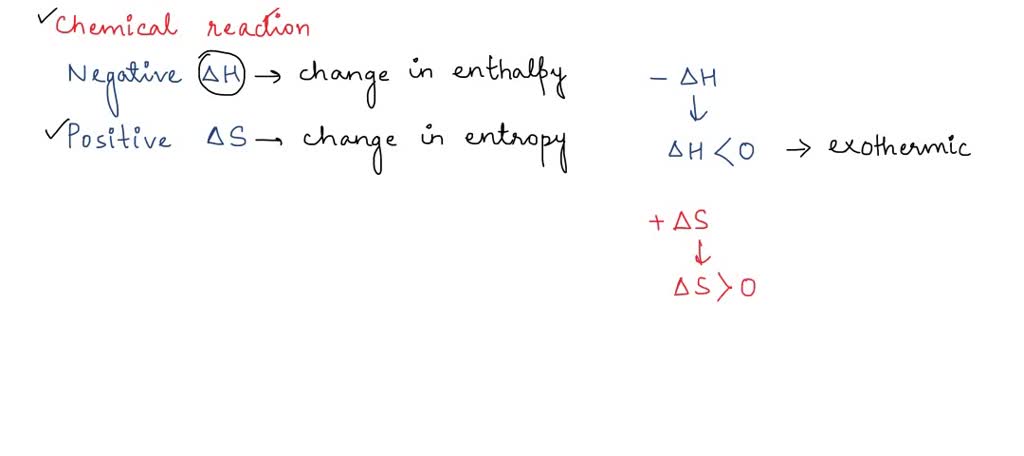 ✓Chemical reaction
Negative ΔH → change in enthalpy
✓Positive ΔS → change in entropy
- ΔH
↓
ΔH < 0 → exothermic
+ ΔS
↓
ΔS > 0